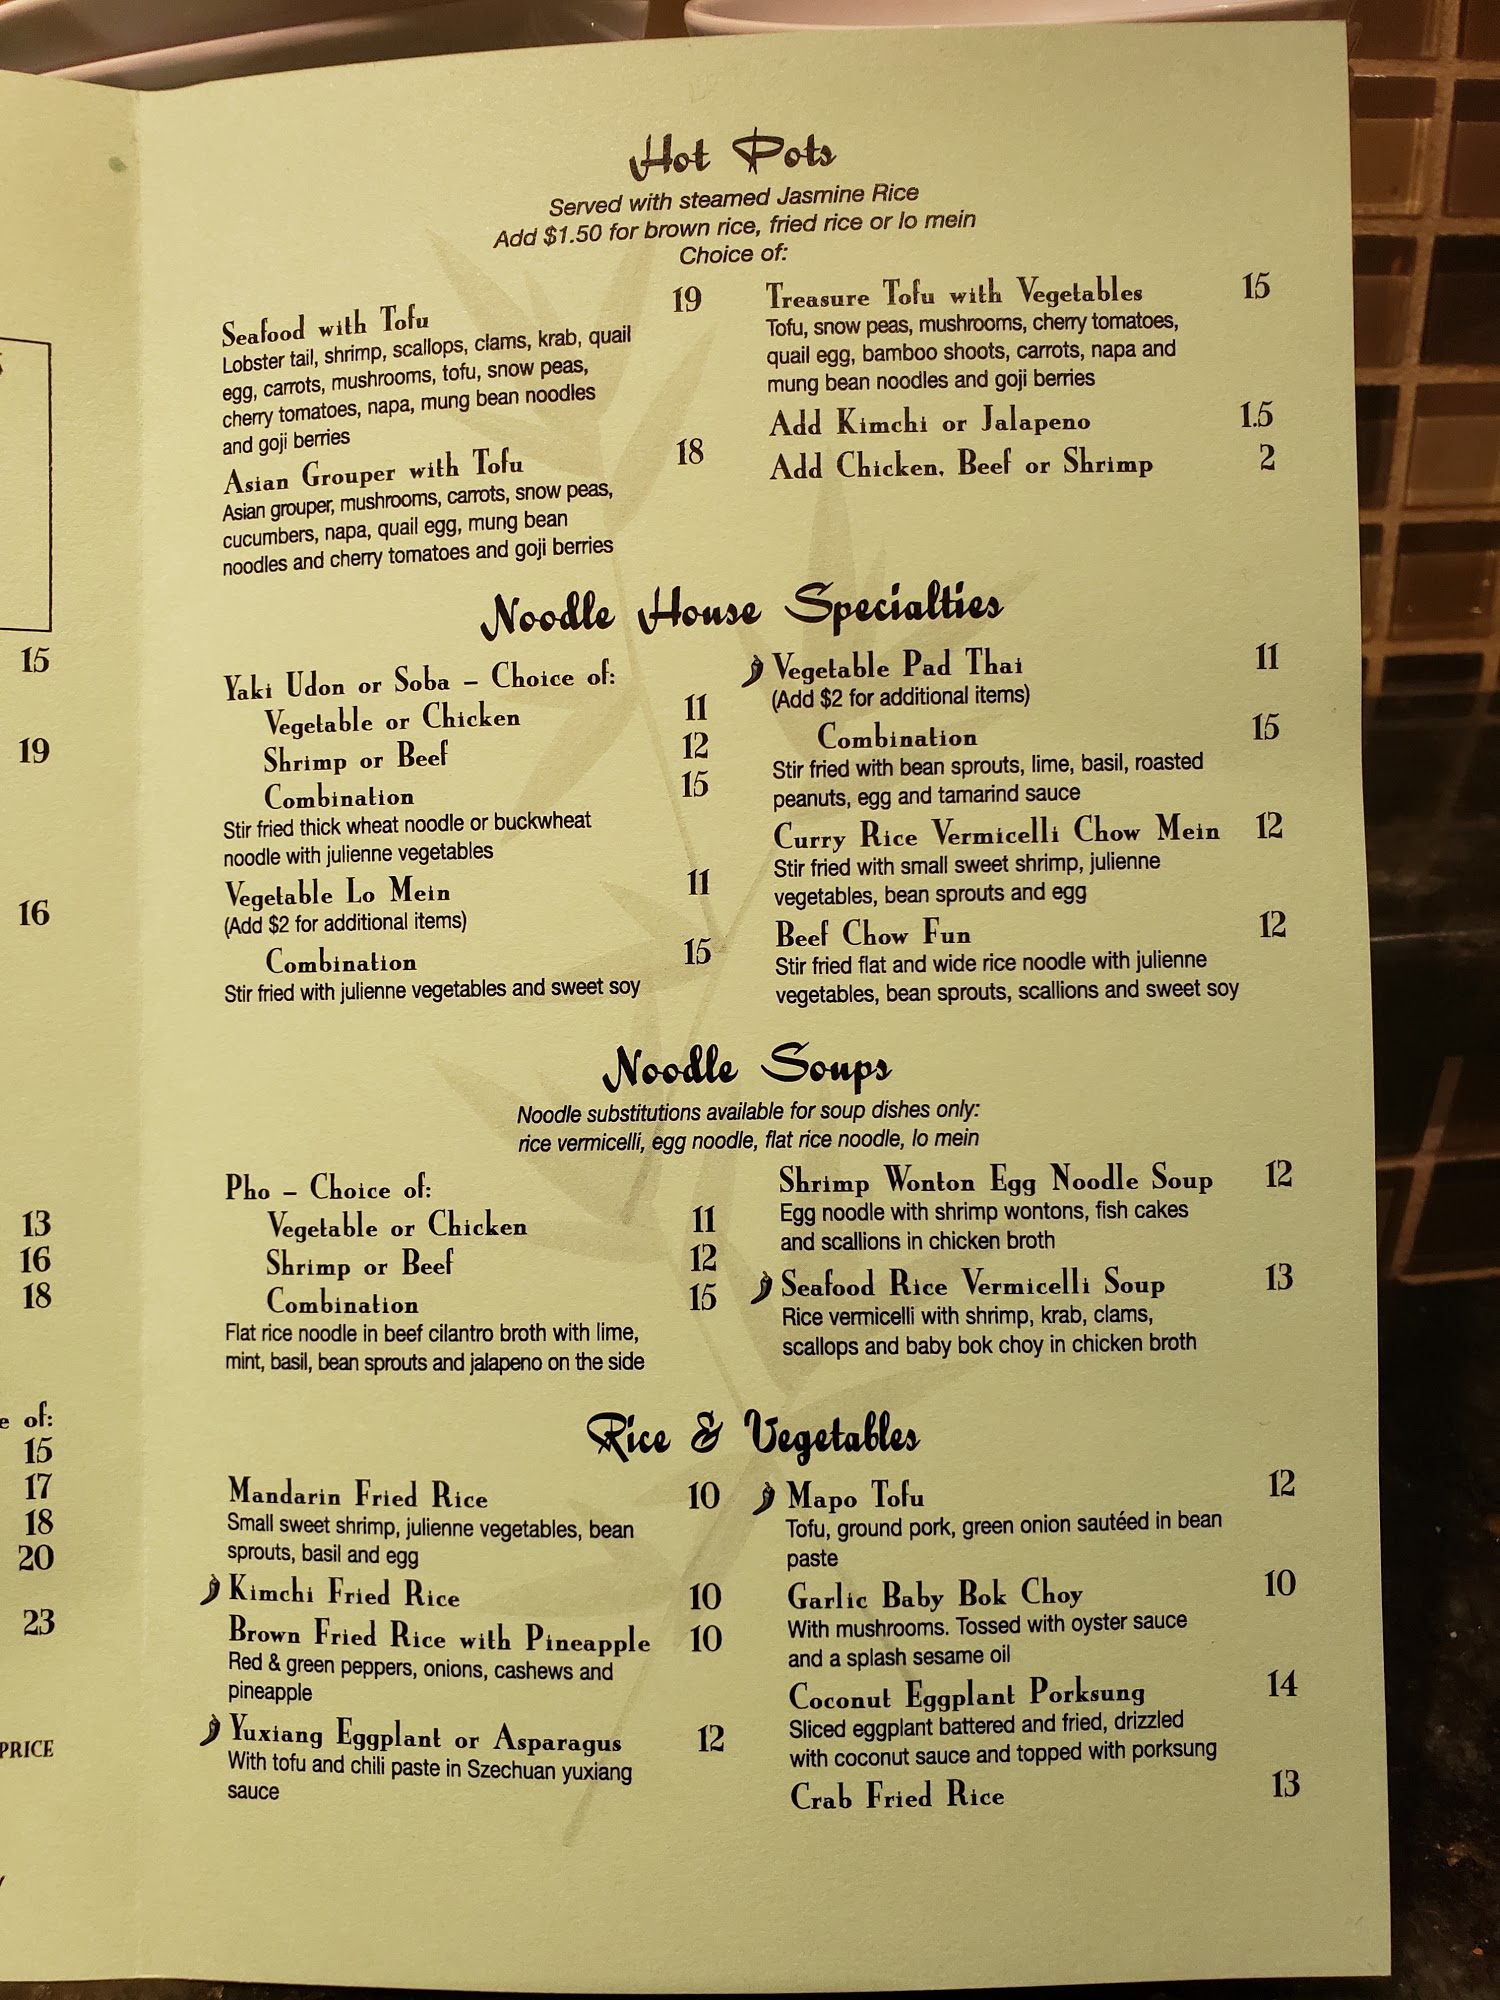 Hot Pots
Served with steamed Jasmine Rice
Add $1.50 for brown rice, fried rice or lo mein
Choice of:
Seafood with Tofu 19
Lobster tail, shrimp, scallops, clams, krab, quail
egg, carrots, mushrooms, tofu, snow peas,
cherry tomatoes, napa, mung bean noodles
and goji berries
Asian Grouper with Tofu 18
Asian grouper, mushrooms, carrots, snow peas,
cucumbers, napa, quail egg, mung bean
noodles and cherry tomatoes and goji berries
Treasure Tofu with Vegetables 15
Tofu, snow peas, mushrooms, cherry tomatoes,
quail egg, bamboo shoots, carrots, napa and
mung bean noodles and goji berries
Add Kimchi or Jalapeno 1.5
Add Chicken, Beef or Shrimp 2
Noodle House Specialties
Yaki Udon or Soba – Choice of:
Vegetable or Chicken 11
Shrimp or Beef 12
Combination 15
Stir fried thick wheat noodle or buckwheat
noodle with julienne vegetables
Vegetable Lo Mein 11
(Add $2 for additional items)
Combination 15
Stir fried with julienne vegetables and sweet soy
Vegetable Pad Thai 11
(Add $2 for additional items)
Combination 15
Stir fried with bean sprouts, lime, basil, roasted
peanuts, egg and tamarind sauce
Curry Rice Vermicelli Chow Mein 12
Stir fried with small sweet shrimp, julienne
vegetables, bean sprouts and egg
Beef Chow Fun 12
Stir fried flat and wide rice noodle with julienne
vegetables, bean sprouts, scallions and sweet soy
Noodle Soups
Noodle substitutions available for soup dishes only:
rice vermicelli, egg noodle, flat rice noodle, lo mein
Pho – Choice of:
Vegetable or Chicken 11
Shrimp or Beef 12
Combination 15
Flat rice noodle in beef cilantro broth with lime,
mint, basil, bean sprouts and jalapeno on the side
Shrimp Wonton Egg Noodle Soup 12
Egg noodle with shrimp wontons, fish cakes
and scallions in chicken broth
Seafood Rice Vermicelli Soup 13
Rice vermicelli with shrimp, krab, clams,
scallops and baby bok choy in chicken broth
Rice & Vegetables
Mandarin Fried Rice 10
Small sweet shrimp, julienne vegetables, bean
sprouts, basil and egg
Kimchi Fried Rice 10
Brown Fried Rice with Pineapple 10
Red & green peppers, onions, cashews and
pineapple
Yuxiang Eggplant or Asparagus 12
With tofu and chili paste in Szechuan yuxiang
sauce
Mapo Tofu 12
Tofu, ground pork, green onion sautéed in bean
paste
Garlic Baby Bok Choy 10
With mushrooms. Tossed with oyster sauce
and a splash sesame oil
Coconut Eggplant Porksung 14
Sliced eggplant battered and fried, drizzled
with coconut sauce and topped with porksung
Crab Fried Rice 13
15
19
16
13
16
18
of:
15
17
18
20
23
PRICE